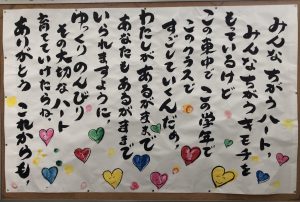 みんな ちがうハート、
みんな ちがうキモチを
もっているけど
この車中で この学年で
このクラスで
すごしていくんだの、
わたしが あるがままで
あなたも あるがままで
いられますように、
ゆっくり のんびり
その大切な ハート
育てていけたらね。
ありがとう これからも、